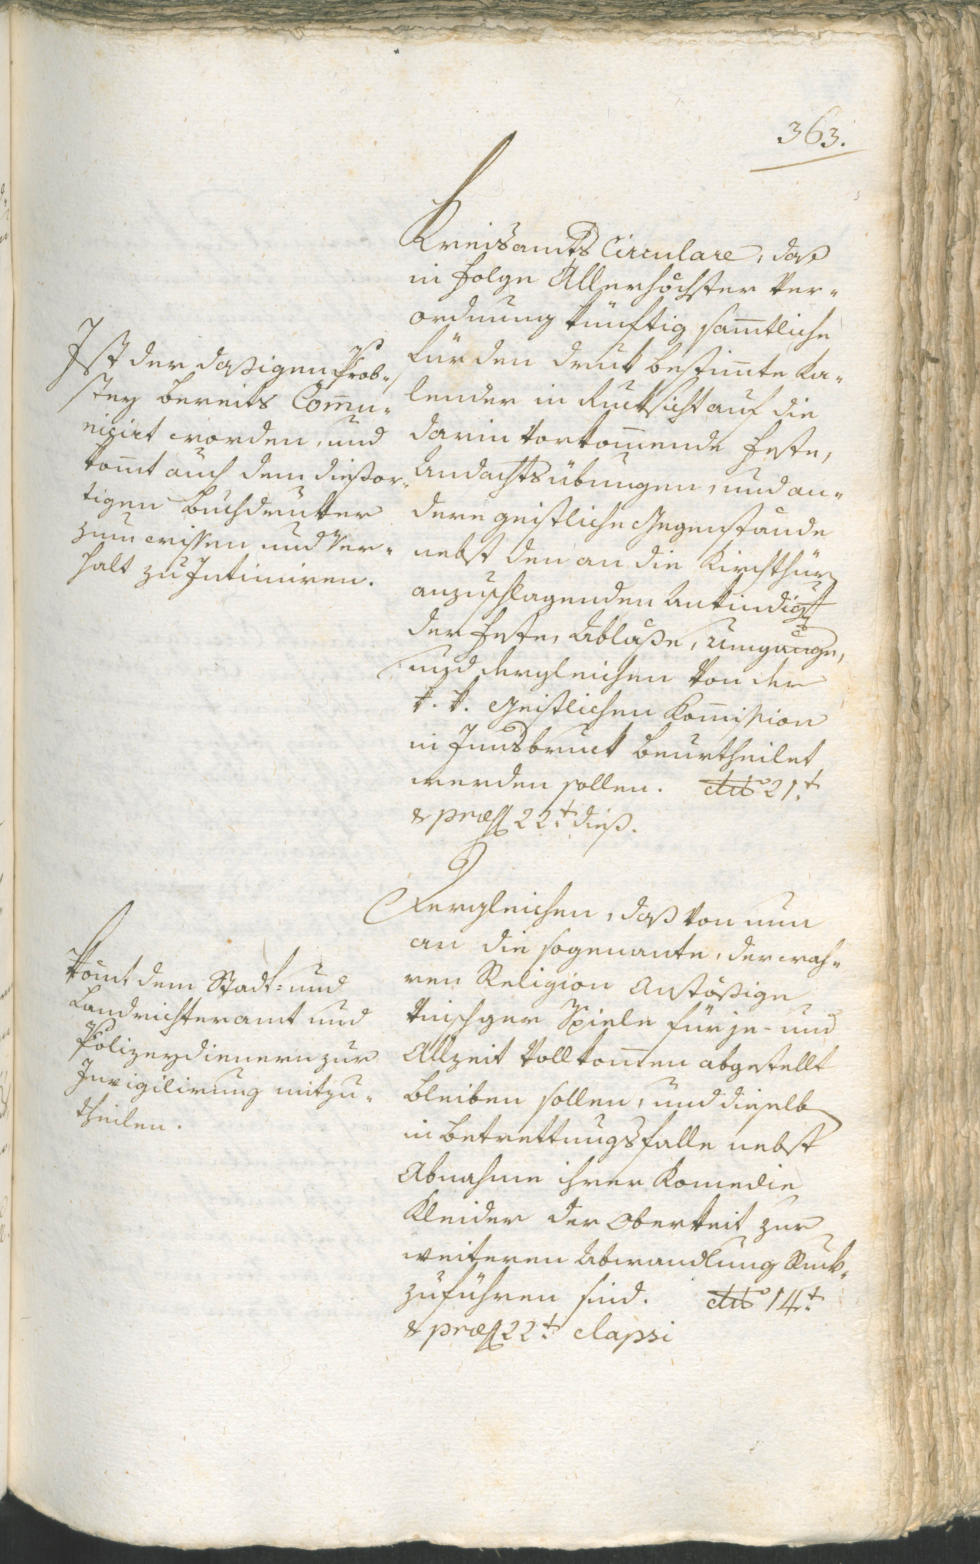 363.
Kreisamts Circulare, daß
in Folge Allerhöchster Ver-
ordnung künftig sam̄tliche
für den Druk bestim̄te Ka-
lender in Rucksicht auf die
darin vorkom̄ende Feste,
Andachtsübungen, und an-
dere geistliche Gegenstände
nebst den an die Kirchthür
anzuschlagenden Ankündig
der Feste, Abläße, Umgänge,
und dergleichen von der
k. k. geistlichen Kom̄ission
in Innsbruck beurtheilet
werden sollen. dtto 21t
& præs 22t dieß.
Ist der daßigen Prob-
stey bereits Com̄u-
nizirt worden, und
kom̄t auch dem dießor-
tigen Buchdrukker
zum wissen und Ver-
halt zu Intimiren.
Dergleichen, daß von nun
an die sogenante, der wah-
ren Religion Anstößige
Spiele für je- und
Allzeit Vollkom̄en abgestellt
bleiben sollen, und dieselb
in Betrettungsfalle nebst
Abnahme ihrer Komedie
Kleider der Oberkeit zur
weiteren Abwandlung Ruck-
zuführen sind. dtto 14t
& præs 22t elapsi
Kom̄t dem Stadt- und
Landrichteramt und
Polizeydienern zur
Invigilirung mitzu-
theilen.